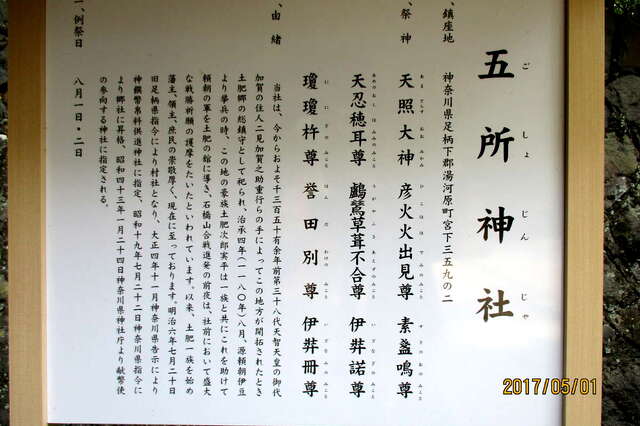 五所神社
ごしょじんじゃ
一、鎮座地
神奈川県足柄下郡湯河原町宮下三五九の二
一、祭神
天照大神 彦火火出見尊 素盞鳴尊
天忍穂耳尊 鸕鶿草葺不合尊 伊弉諾尊
瓊瓊杵尊 誉田別尊 伊弉冊尊
一、由緒
当社は、今からおよそ千三百五十有余年前第三十八代天智天皇の御代
加賀の住人二見加賀之助重行らの手によってこの地方が開拓されたとき
土肥郷の総鎮守として祀られ、治承四年(一一八〇年)八月、源頼朝伊豆
より挙兵の時、この地の豪族土肥次郎実平は一族と共にこれを助けて
頼朝の軍を土肥の館に導き、石橋山合戦進発の前夜は、社前において盛大
な戦勝祈願の護摩をたいたといわれています。以来、土肥一族を始め
藩主、領主、庶民の崇敬厚く、現在に至っております。明治六年七月二十日
旧足柄県指令により村社となり、大正四年十一月神奈川県告示により
神饌幣帛料供進神社に指定、昭和十九年七月二十二日神奈川県指令に
より郷社に昇格、昭和四十三年一月二十四日神奈川県神社庁より献幣使
の参向する神社に指定される。
一、例祭日
八月一日・二日
2017/05/01